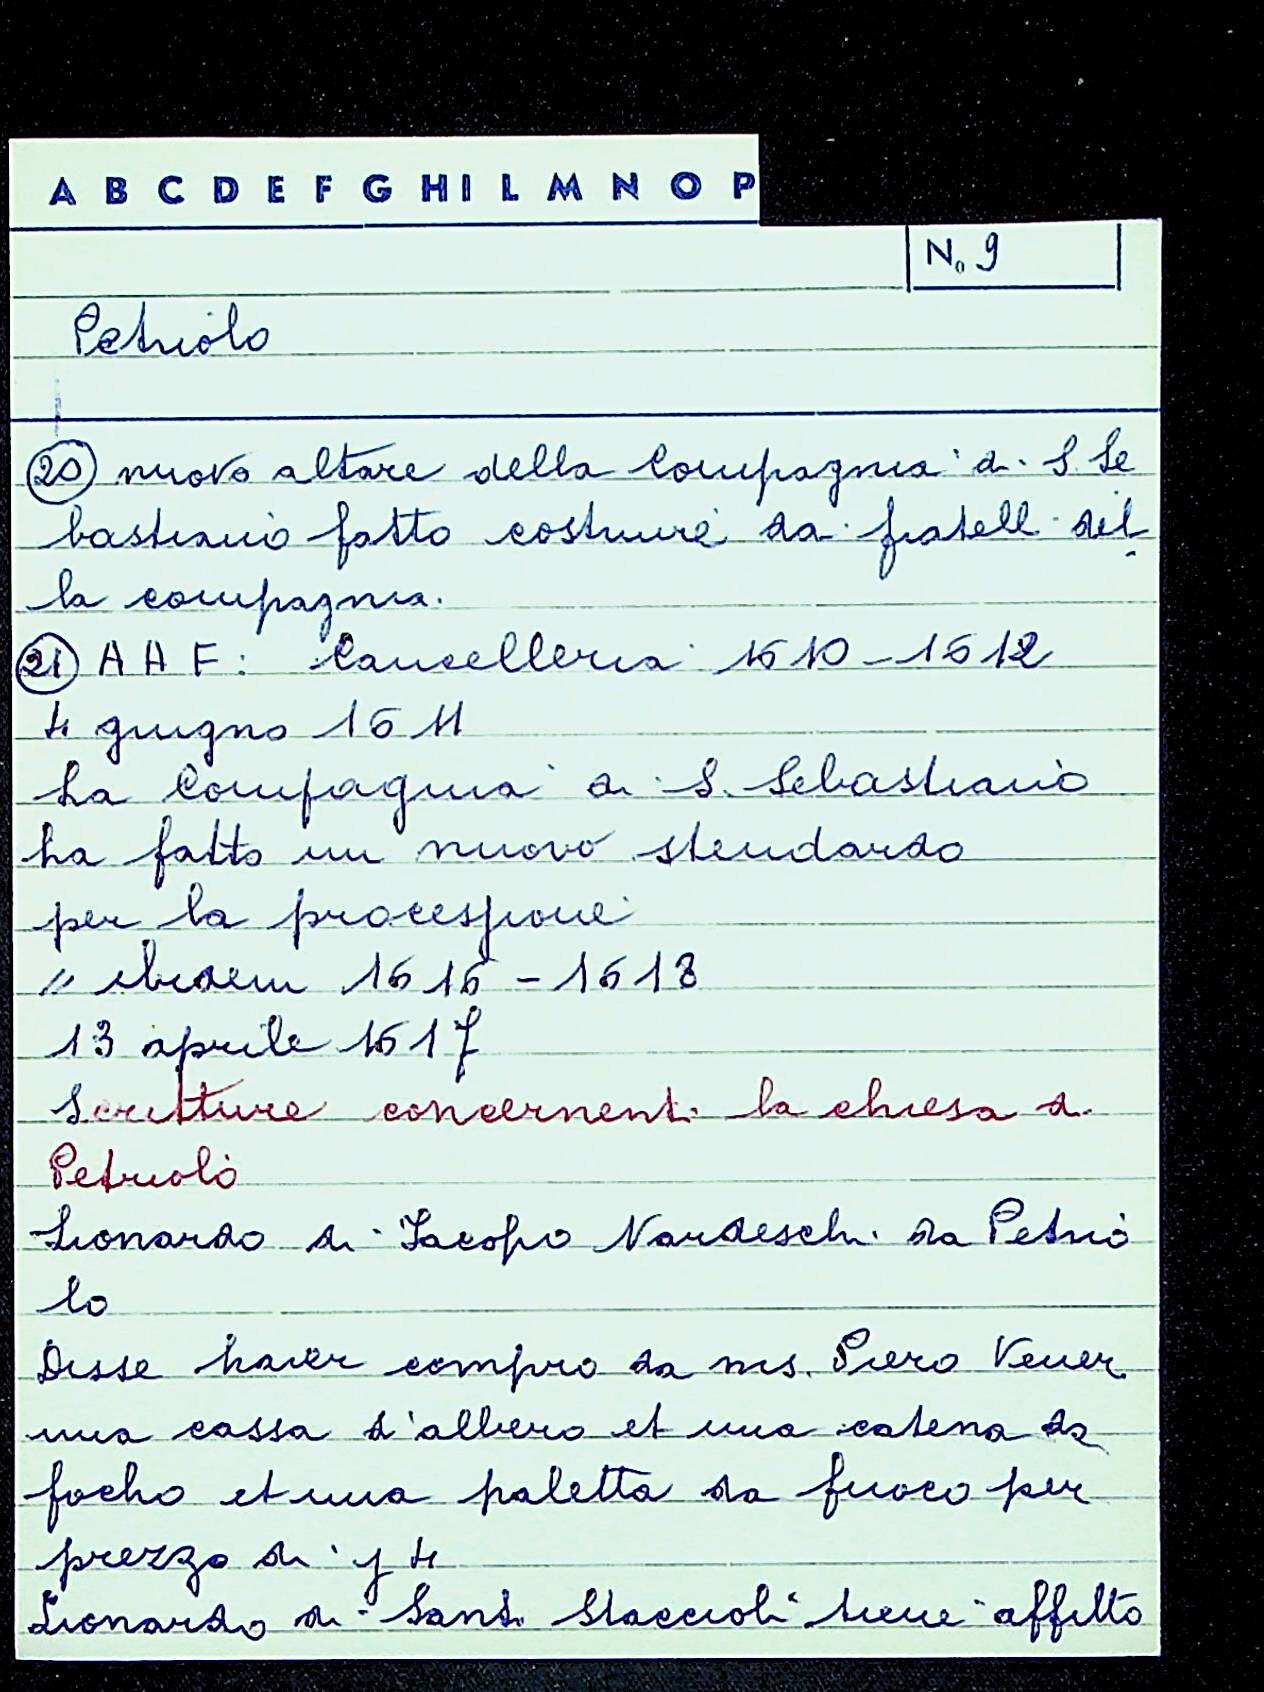 A B C D E F G H I L M N O P
N. 9
Petriolo
20 nuovo altare della Compagnia di S. Se
bastiano fatto costruire da fratelli del
la compagnia.
21 A A F: Cancelleria 1610-1612
4 giugno 1611
La Compagnia di S. Sebastiano
ha fatto un nuovo stendardo
per la processione
" ibidem 1616-1618
13 aprile 1617
Scritture concernenti la chiesa di
Petriolo
Lionardo di Jacopo Nardeschi da Petrio
lo
Disse haver compro da ms. Piero Vener
una cassa d'albero et una catena da
focho et una paletta da fuoco per
prezzo di 4
Lionardo di Santi Staccioli tiene affitto